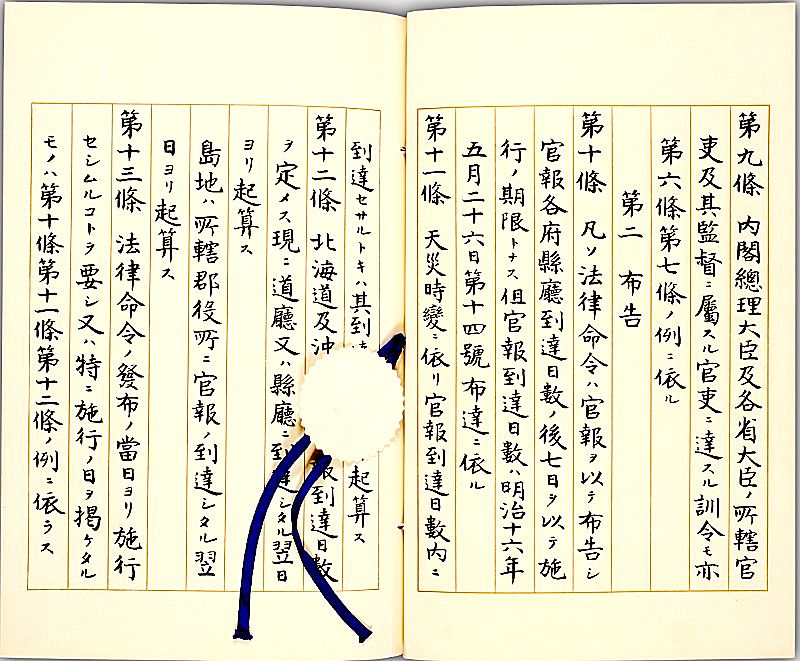 第九條 内閣總理大臣及各省大臣ノ所轄官
吏及其監督ニ屬スル官吏ニ達スル訓令モ亦
第六條第七條ノ例ニ依ル
第二 布告
第十條 凡ソ法律命令ハ官報ヲ以テ布告シ
官報各府縣廳到達日數ノ後七日ヲ以テ施
行ノ期限トナス但官報到達日數ハ明治十六年
五月二十六日第十四號布達ニ依ル
第十一條 天災時變ニ依リ官報到達日數内ニ
到達セサルトキハ其到 起算ス
第十二條 北海道及沖 報到達日數
ヲ定メス現ニ道廳又ハ縣廳ニ到達シタル翌日
ヨリ起算ス
島地ハ所轄郡役所ニ官報ノ到達シタル翌
日ヨリ起算ス
第十三條 法律命令ノ發布ノ當日ヨリ施行
セシムルコトヲ要シ又ハ特ニ施行ノ日ヲ掲ケタル
モノハ第十條第十一條第十二條ノ例ニ依ラス